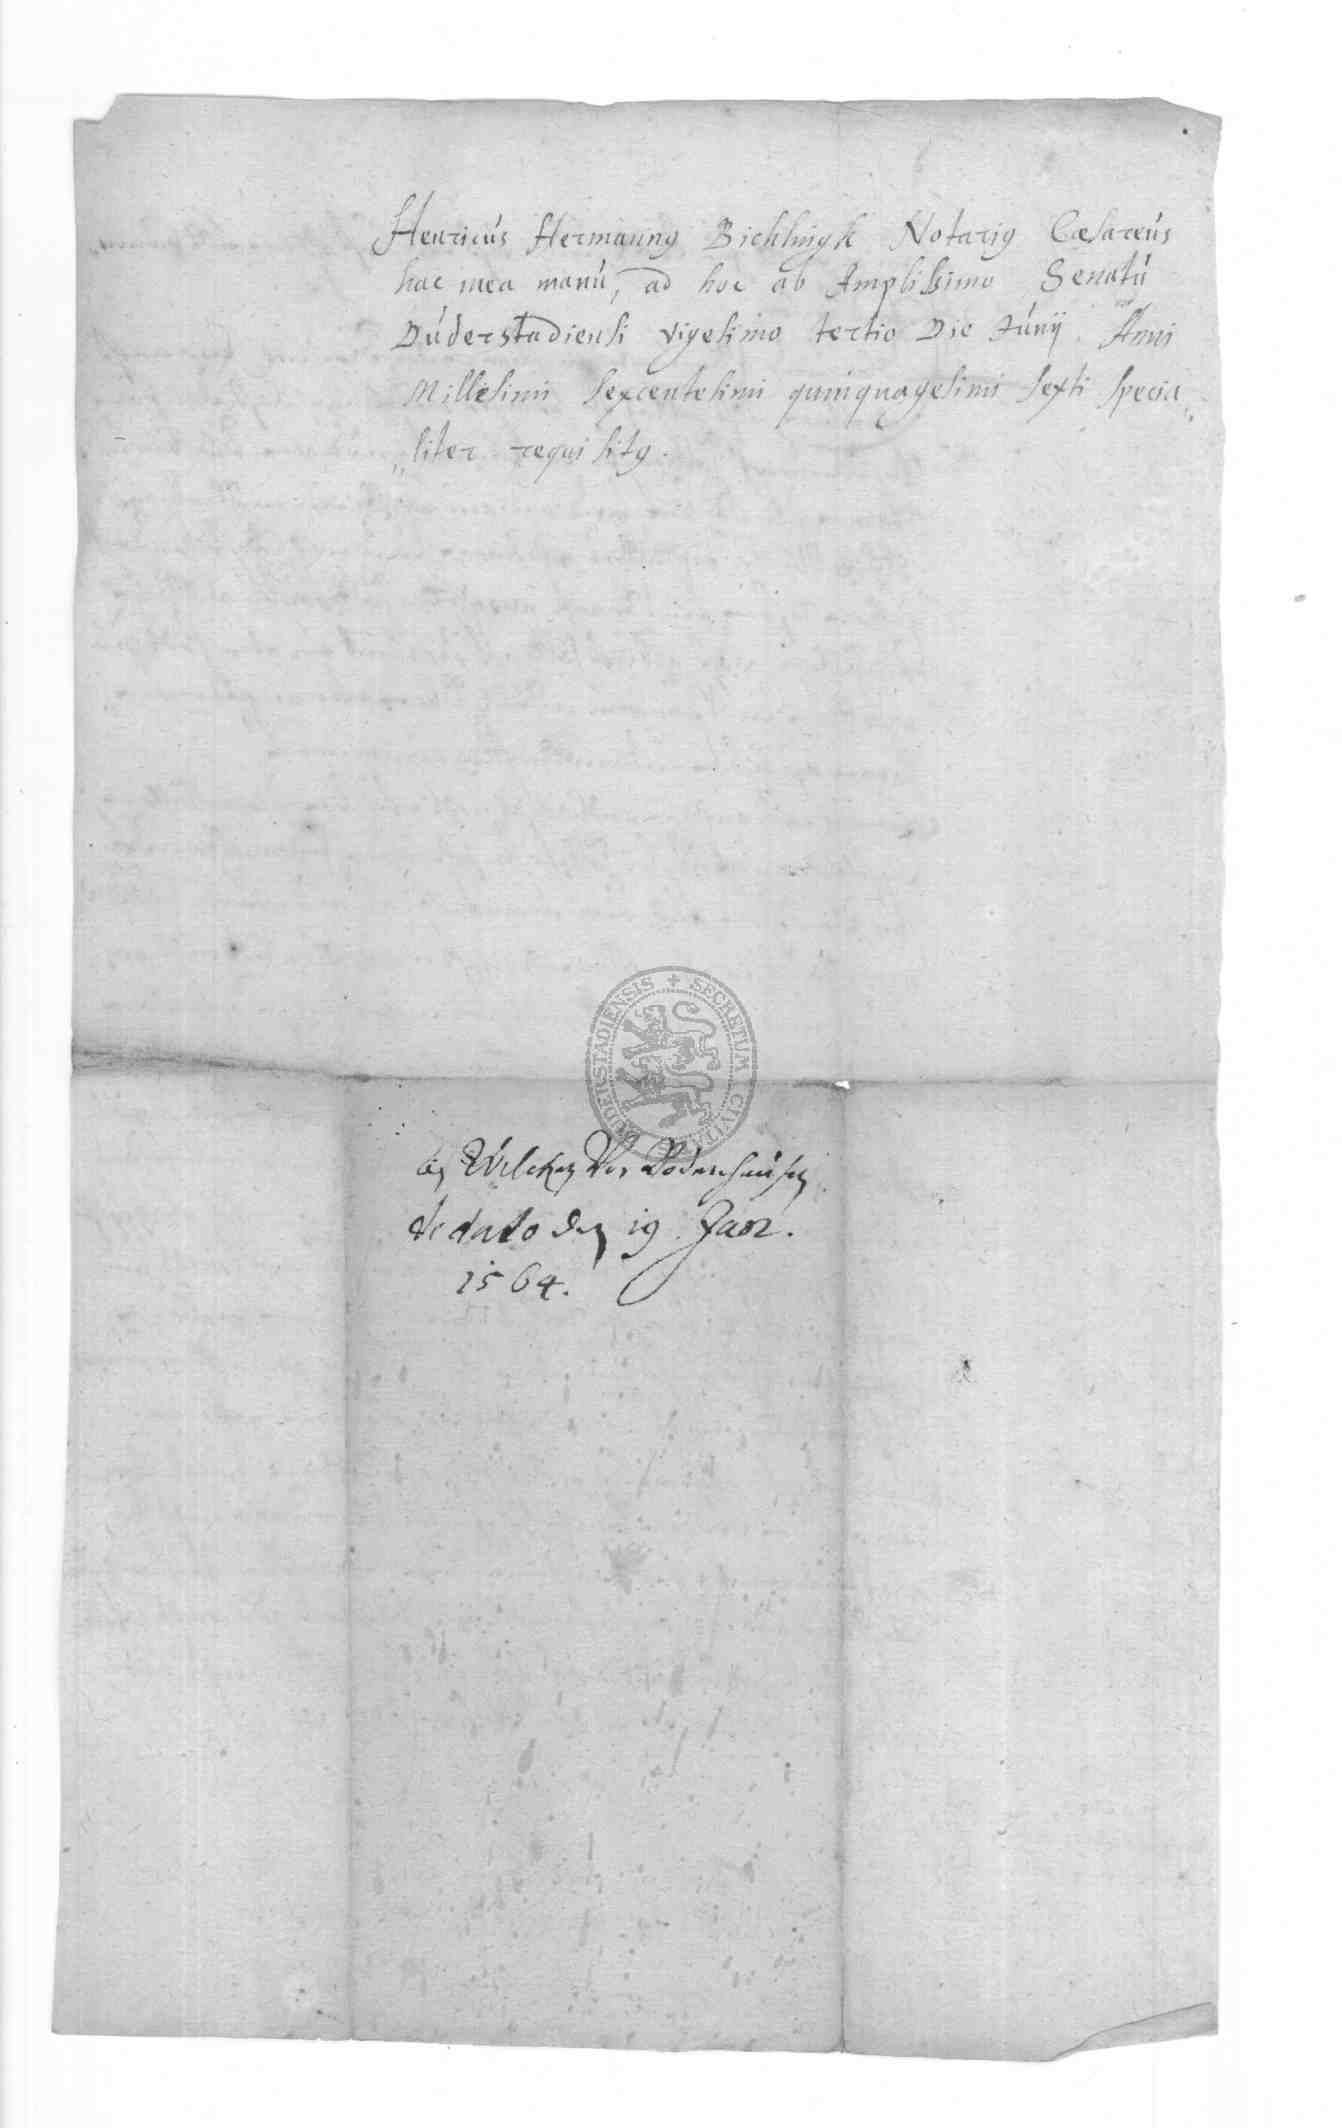 Henricús Hermannꝰ Bichlingk Notariꝰ Cæsareús
hac mea manú, ad hoc ab Amplissimo Senatú
Dúderstadiensi vigesimo tertio Die Júnij Anni
Millesimi sexcentesimi quinquagesimi sexti specia„
„liter requisitꝰ.
SECRETUM CIVIT DUDERSTADIENSIS
Von Bodenhausen
de dato den 19 Janr.
1564.